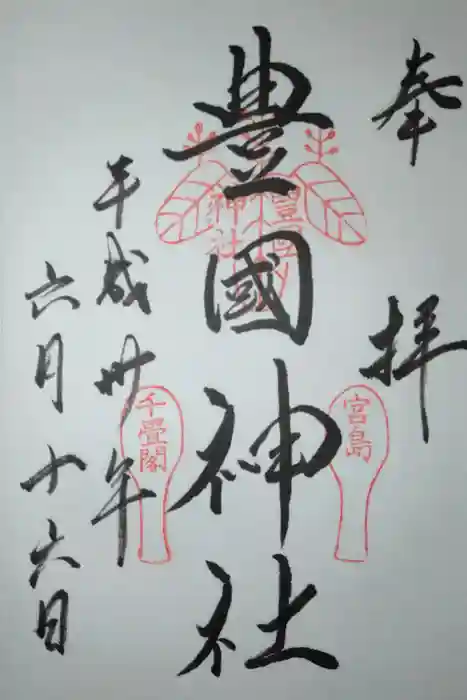 奉拝
豊國神社
平成卅年
六月十六日
宮島
千畳閣
豊国神社